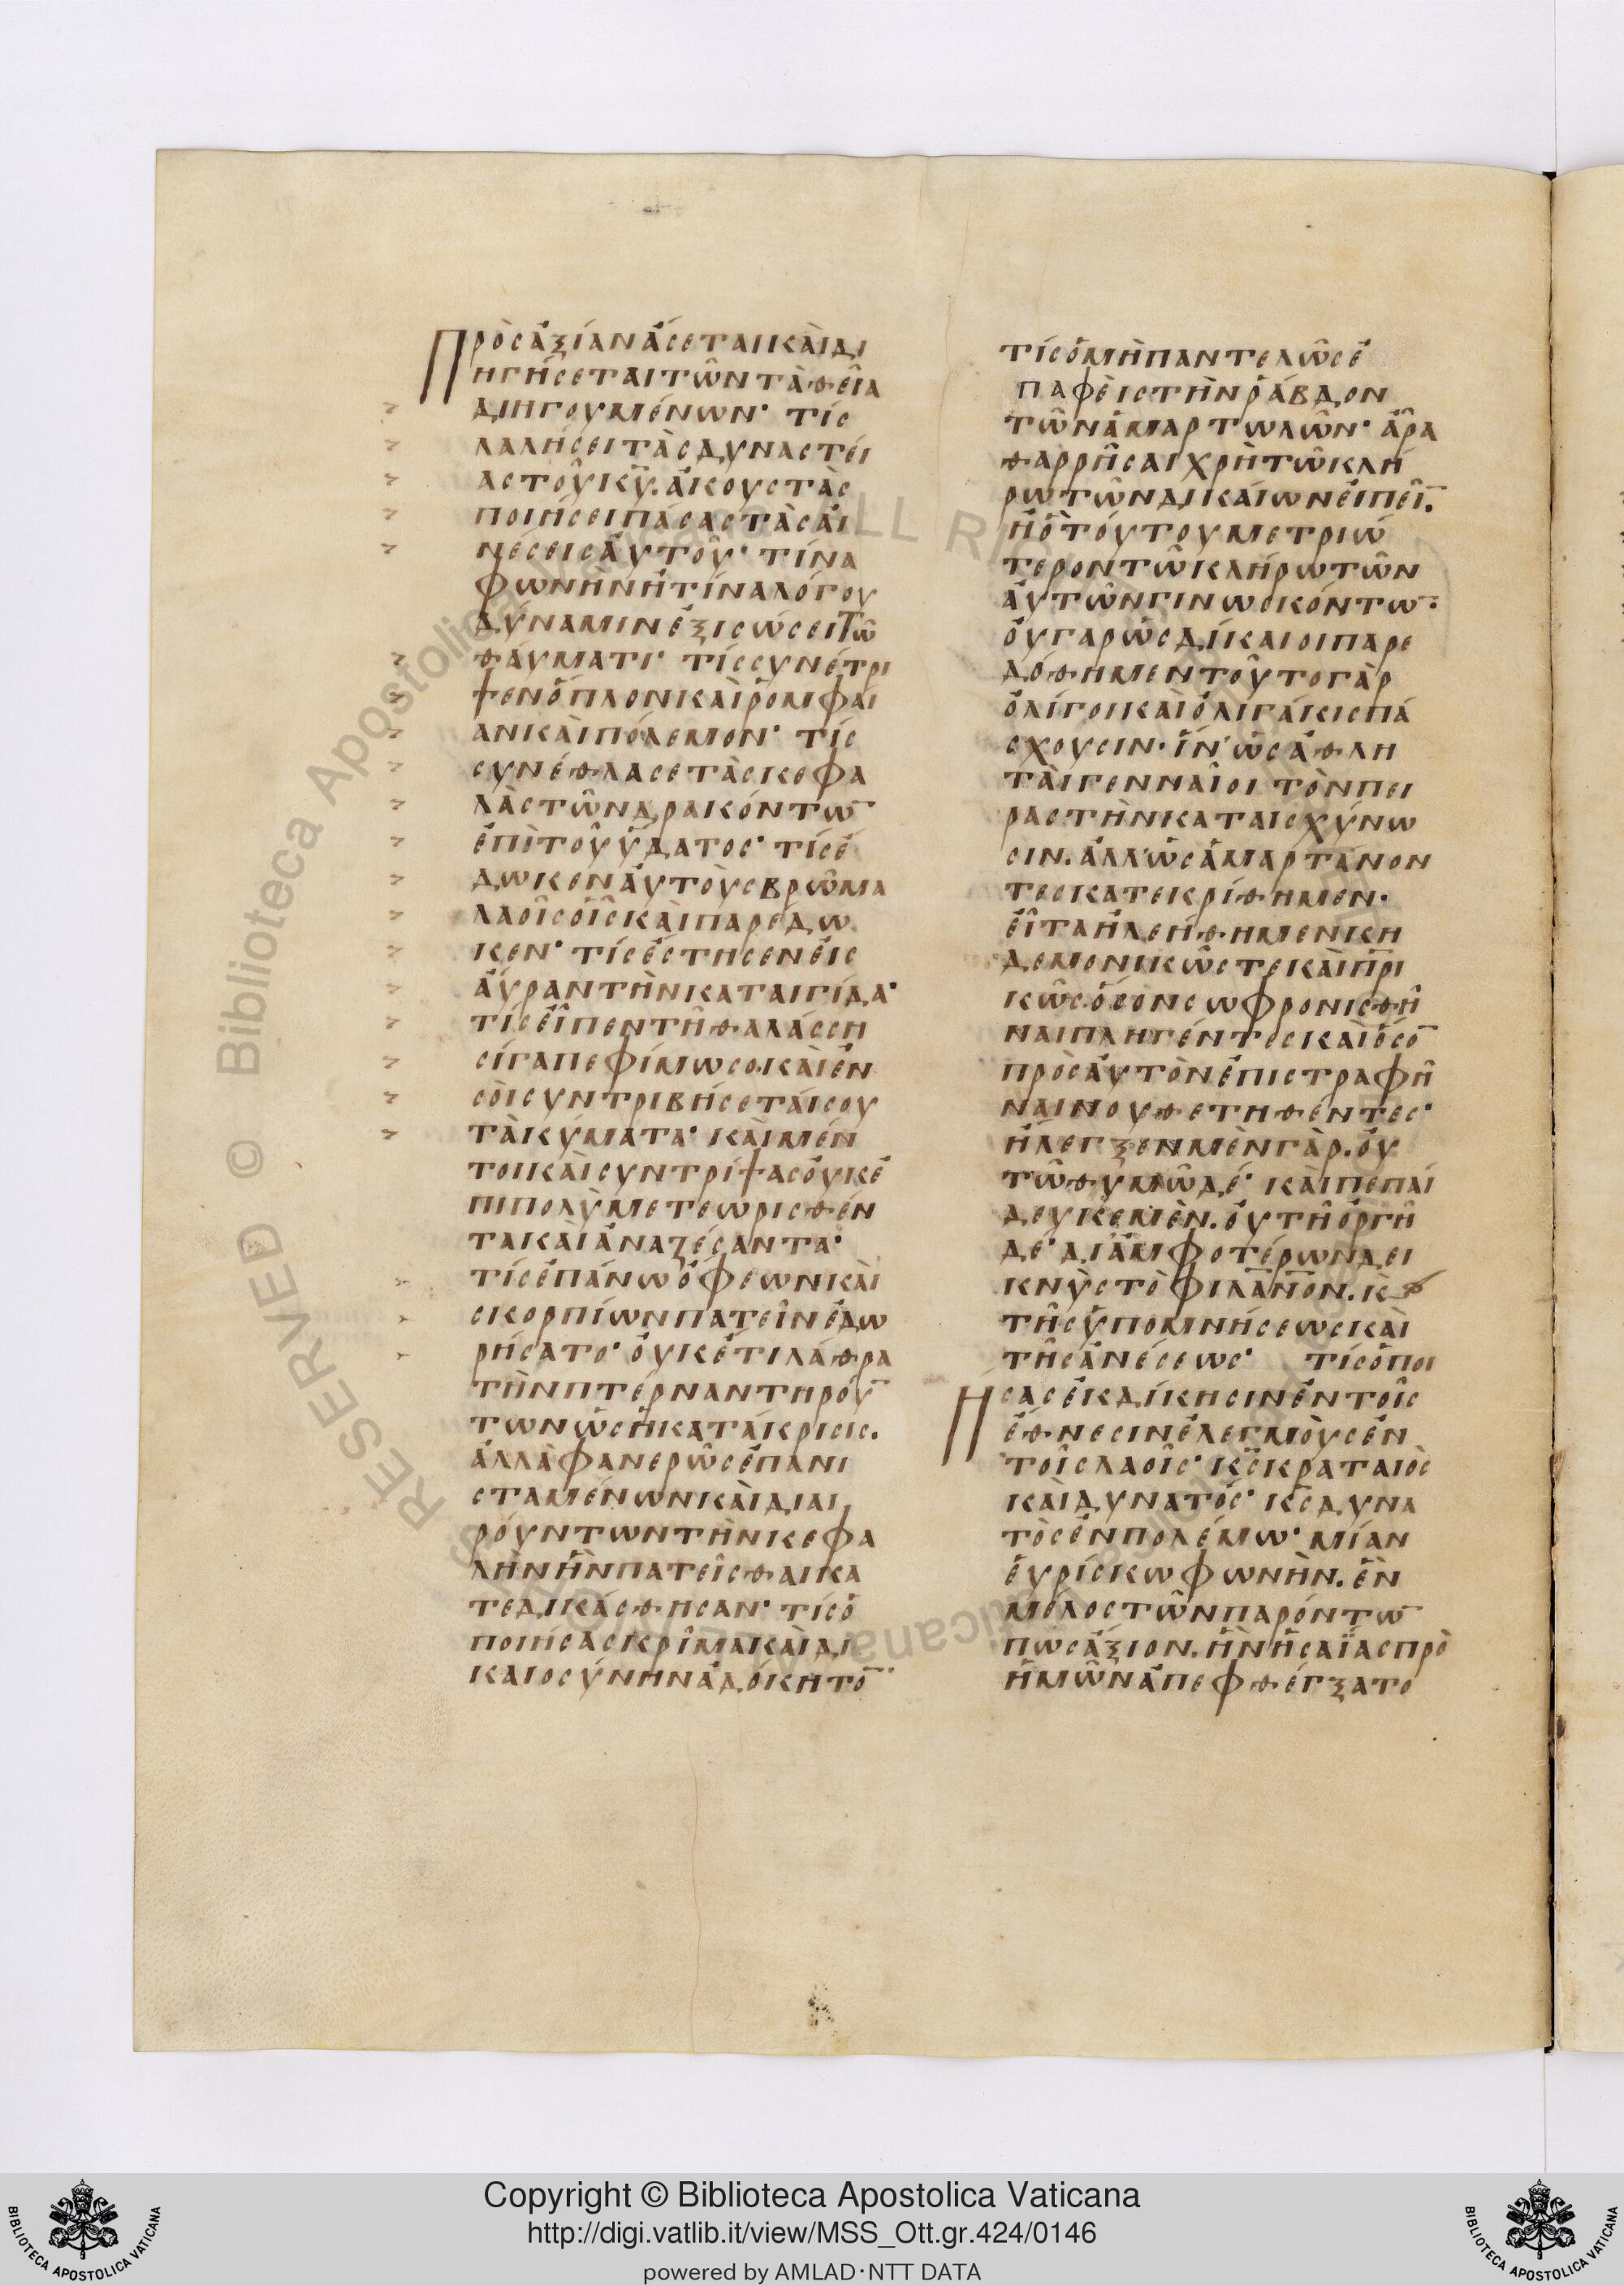 Πρὸς ἀξίαν ἄσεται καὶ δι
ηγήσεται τῶν τὰ θεῖα
διηγουμένων· τίς
λαλήσει τὰς δυναστεί
ας τοῦ κ̅υ̅. ἀκουστὰς
ποιήσει πάσας τὰς αἰ
νέσεις αὐτοῦ· τίνα
φωνὴν ἢ τίνα λόγου
δύναμιν ἐξισώσει τῶ
θαύματι· τίς συνέτρι
ψεν ὅπλον καὶ ῥομφαί
αν καὶ πόλεμον· τίς
συνέθλασε τὰς κεφα
λὰς τῶν δρακόντω̅
ἐπὶ τοῦ ὕδατος· τίς ἔ
δωκεν αὐτοὺς βρῶμα
λαοῖς οἷς καὶ παρέδω
κεν· τίς ἔστησεν εἰς
αὔραν τὴν καταιγίδα·
τίς εἶπεν τῆ θαλάσση
σίγα πεφίμωσο. καὶ ἐν
σοὶ συντριβήσεταί σου
τὰ κύματα· καὶ μέν
τοι καὶ συντρίψας οὐκ ἐ
πιπολὺ μετεωρισθέν
τα καὶ ἀναζέσαντα·
τίς ἐπάνω ὄφεων καὶ
σκορπίων πατεῖν ἐδω
ρήσατο· οὐκέτι λάθρα
τὴν πτέρναν τηρού̅
των ὡς ἡ κατάκρισις.
ἀλλὰ φανερῶς ἐπανι
σταμένων καὶ διαι
ρόυντων τὴν κεφα
λὴν ἣν πατεῖσθαι κα
τεδικάσθησαν· τίς ὁ
ποιήσας κρῖμα καὶ δι
καιοσύνην ἀδόκητο̅·
τίς ὁ μὴ παντελῶς ἐ
παφεὶς τὴν ῥάβδον
τῶν ἁμαρτωλῶν· ἆρα
θαρρῆσαι χρὴ τῶ κλή
ρω τῶν δικαίων εἰπεῖ̅.
ἢ ὃ τούτου μετριώ
τερον τῶ κλήρω τῶν
αὐτῶν γινωσκόντω̅·
οὐ γὰρ ὡς δίκαιοι παρε
δόθημεν τοῦτο γὰρ
ὀλίγοι καὶ ὀλιγάκις πά
σχουσιν· ἵν' ὡς ἀθλη
ταὶ γενναῖοι τὸν πει
ραστὴν καταισχύνω
σιν. ἀλλ' ὡς ἁμαρτάνον
τες κατεκρίθημεν·
εἶτα ἠλεήθημεν κη
δεμονικῶς τε καὶ π̅ρ̅ι
κῶς. ὅσον σωφρονισθῆ
ναι πληγέντες καὶ ὅσο̅
πρὸς αὐτὸν ἐπιστραφῆ
ναι νουθετηθέντες·
ἤλεγξεν μὲν γὰρ. οὐ
τῶ θυμῶ δέ· καὶ πεπαί
δευκε μὲν. οὐ τῆ ὀργῆ
δέ· δι' ἀμφοτέρων δει
κνὺς τὸ φιλά̅ν̅ο̅ν. κὲ
τῆς ὑπομνήσεως καὶ
τῆς ἀνέσεως· τίς ὁ ποι
ήσας ἐκδίκησιν ἐν τοῖς
ἔθνεσιν ἐλεγμοὺς ἐν
τοῖς λαοῖς· κ̅ς̅ κραταιὸς
καὶ δυνατός· κ̅ς̅ δυνα
τὸς ἐν πολέμω· μίαν
εὑρίσκω φωνὴν. ἓν
μέλος τῶν παρόντω̅
πως ἄξιον. ἣν ἡσαΐας πρὸ
ἡμῶν ἀπεφθέγξατο
Copyright © Biblioteca Apostolica Vaticana
http://digi.vatlib.it/view/MSS_Ott.gr.424/0146
powered by AMLAD·NTT DATA
BIBLIOTECA APOSTOLICA VATICANA
BIBLIOTECA APOSTOLICA VATICANA